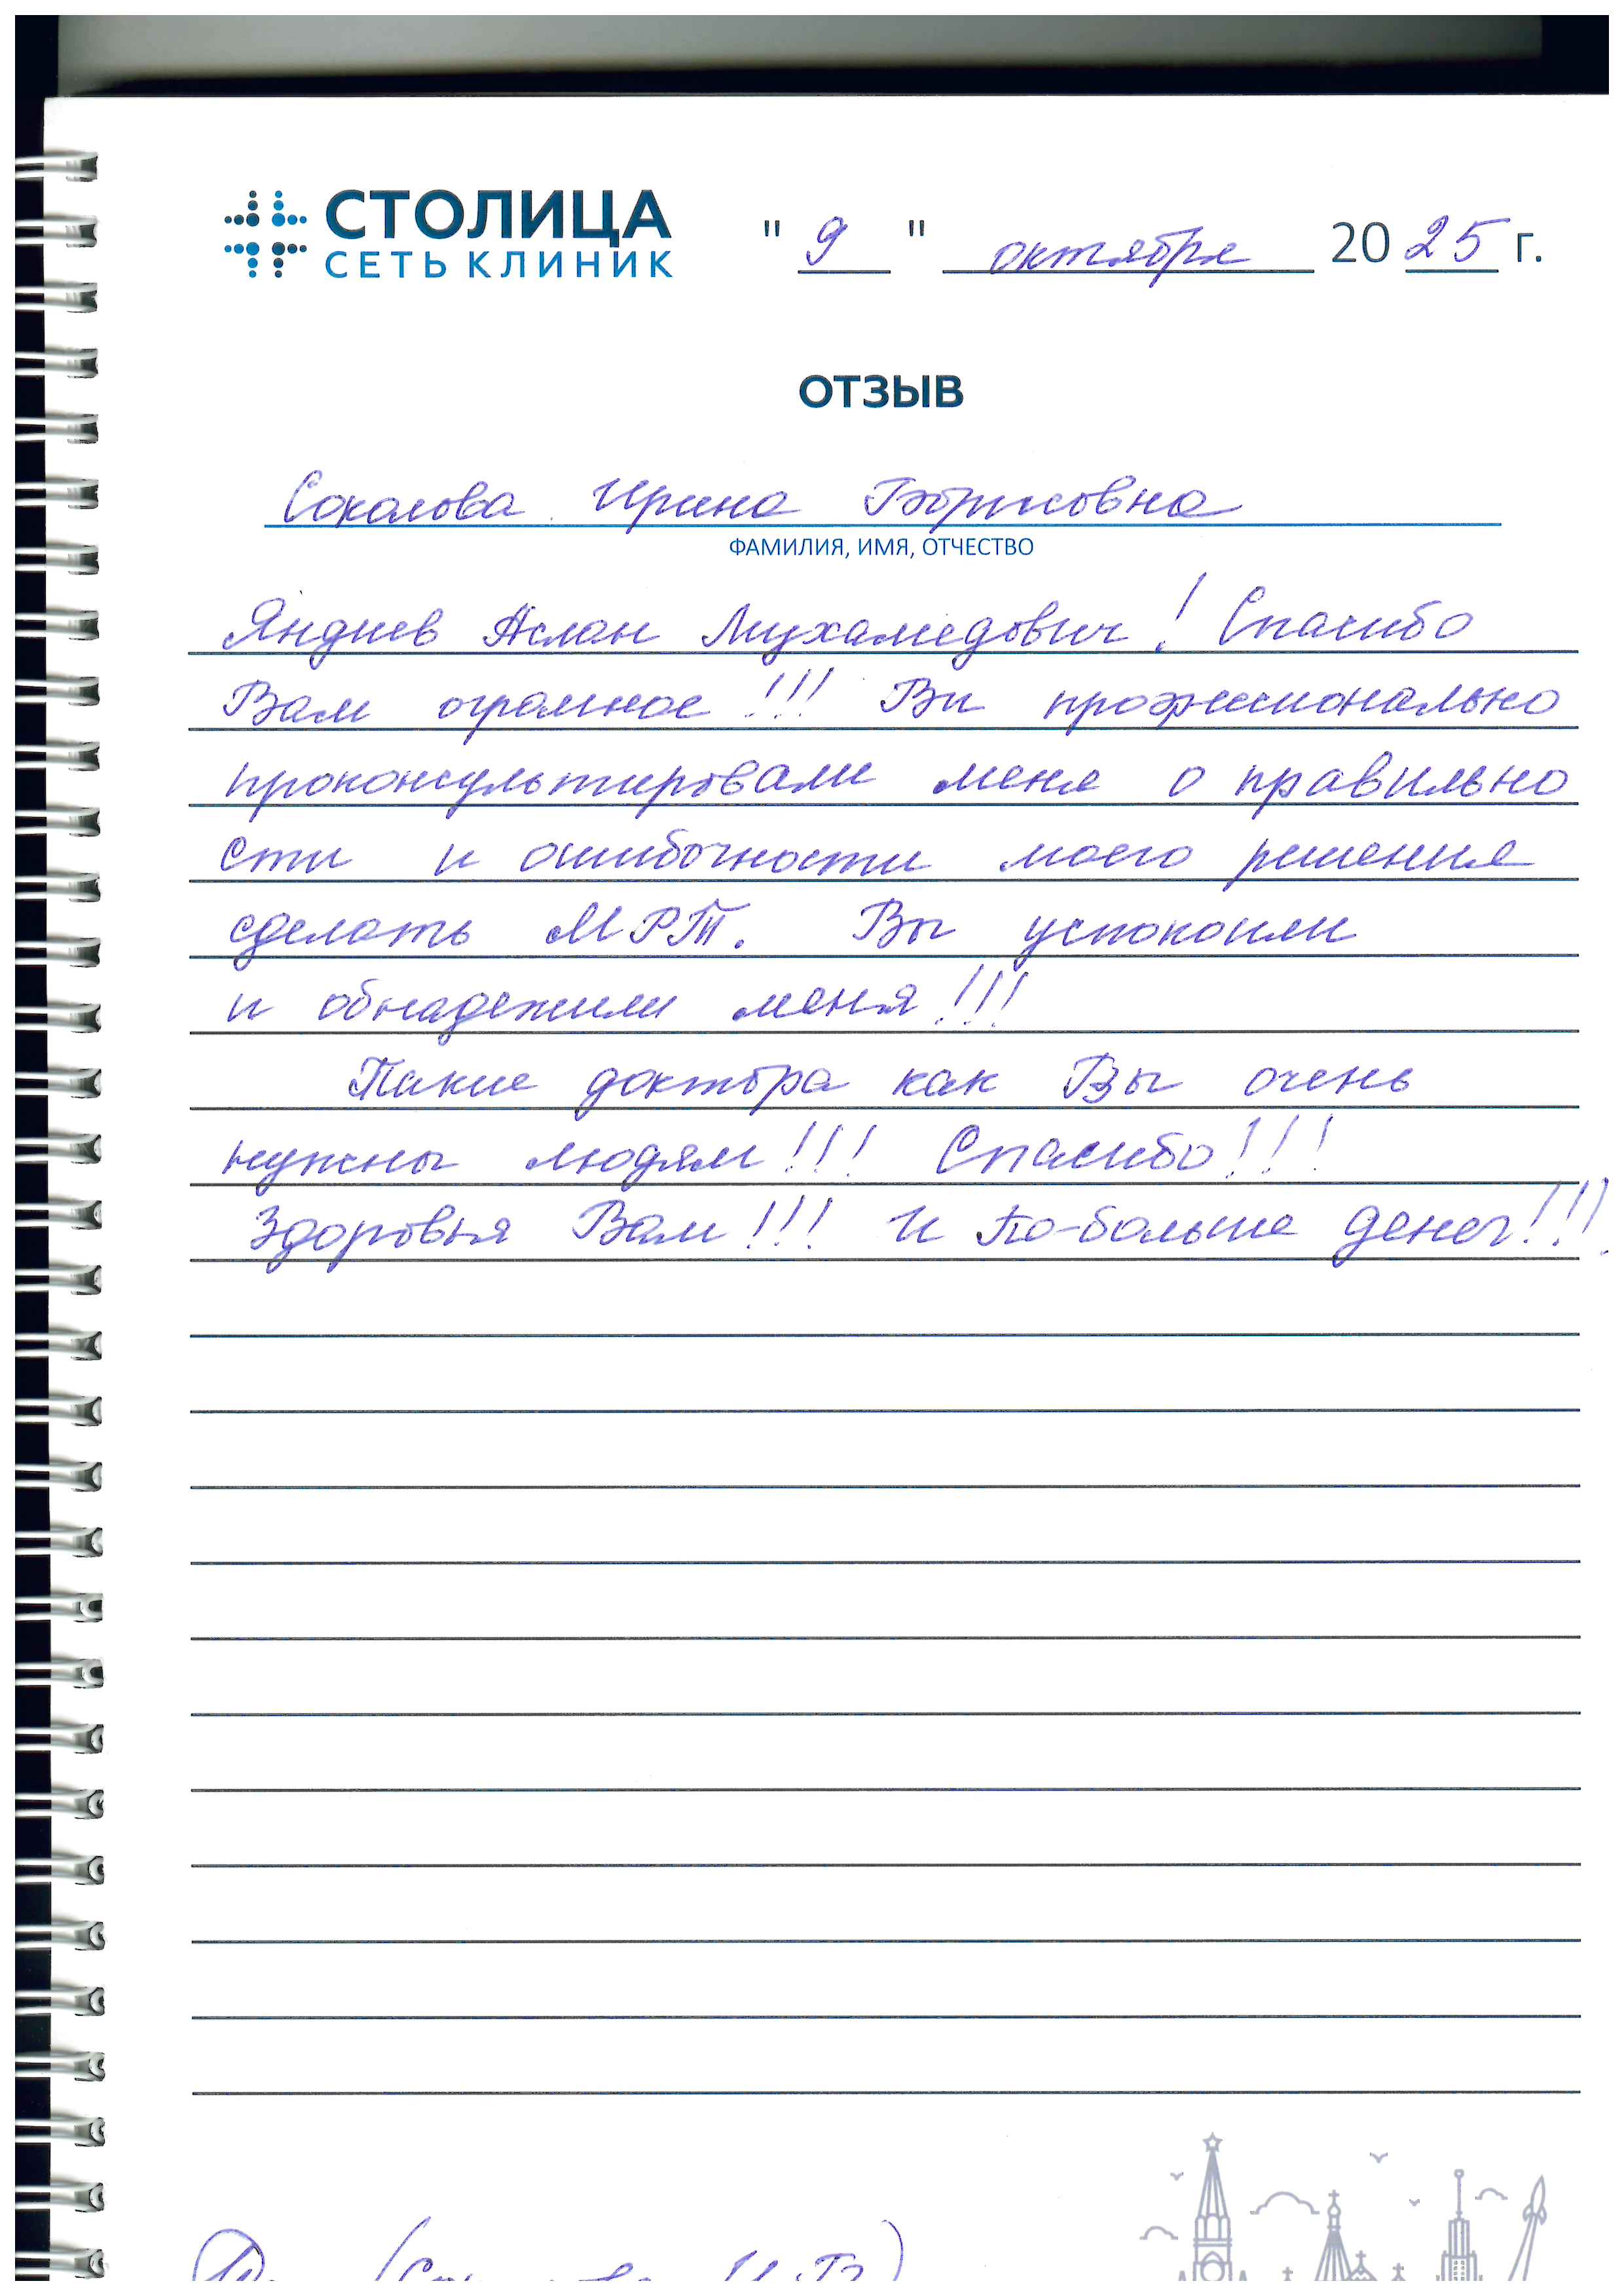 СТОЛИЦА
СЕТЬ КЛИНИК
" 9 " октября 2025 г.
ОТЗЫВ
Соколова Ирина Борисовна
ФАМИЛИЯ, ИМЯ, ОТЧЕСТВО
Яндиев Аслан Мухамедович! Спасибо
Вам огромное!!! Вы профессионально
проконсультировали меня о правильно
сти и ошибочности моего решения
сделать МРТ. Вы успокоили
и обнадежили меня!!!
Такие доктора как Вы очень
нужны людям!!! Спасибо!!!
Здоровья Вам!!! И по-больше денег!!!